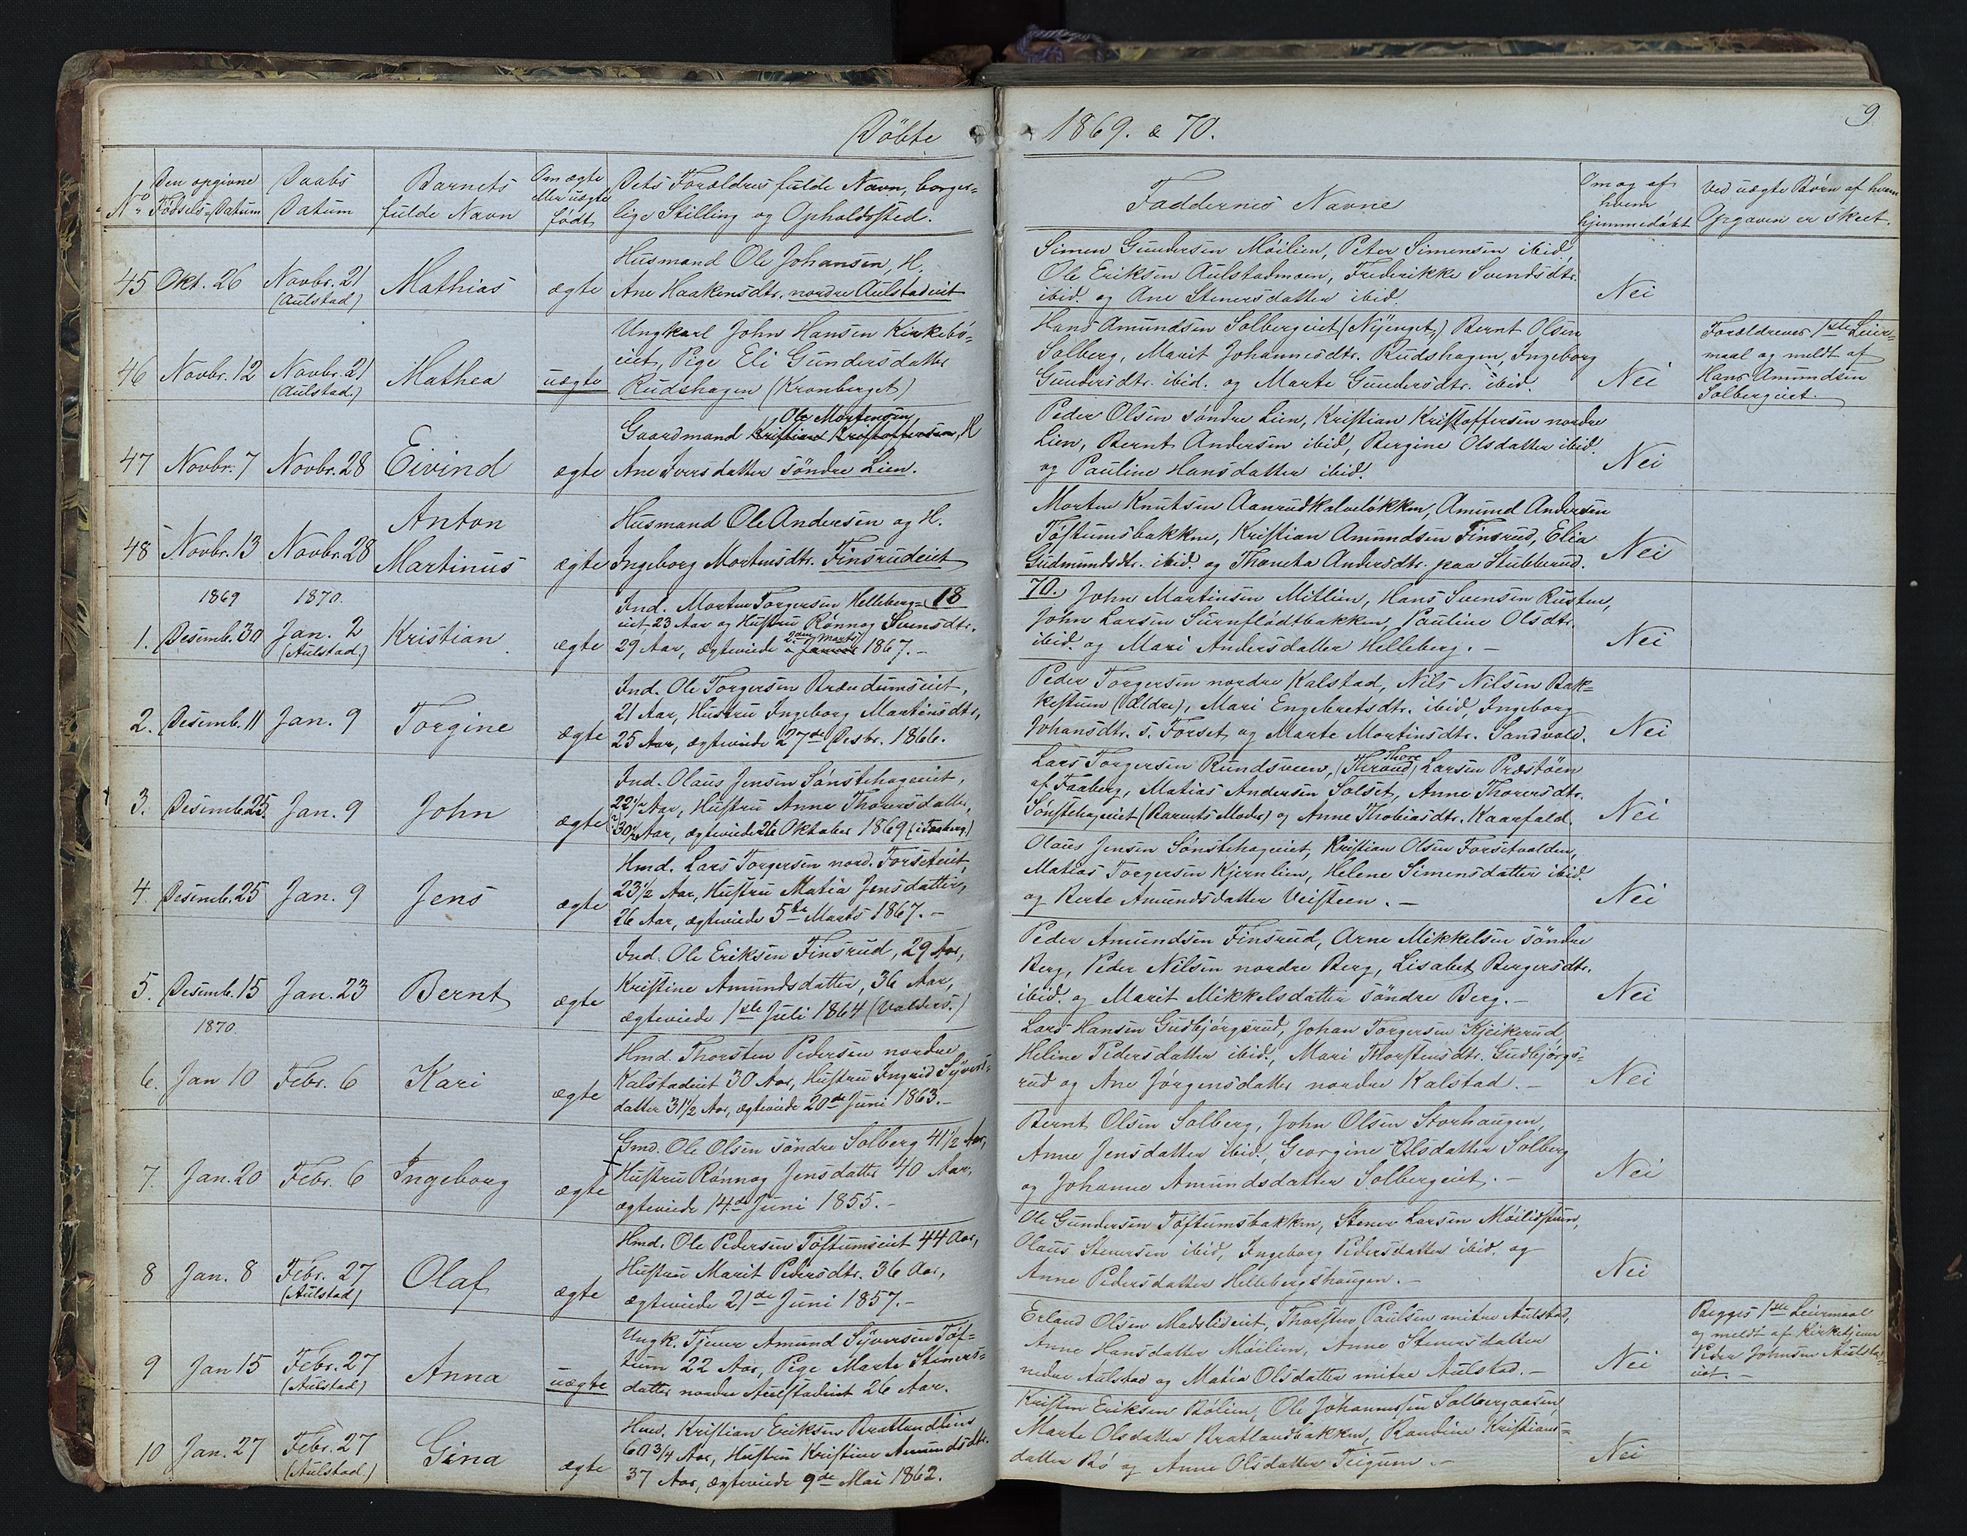 Døbte
1869. & 70.
9.
No
Den opgivne
Fødsels-Datum
Daabs
Datum
Barnets
fulde Navn
Om ægte
eller uægte
født
Dets Forældres fulde Navn, borger-
lige Stilling og Opholdssted.
Faddernes Navne
Om og af
hvem
hjemmedøbt
Ved uægte Børn af hvem
Opgaven er skeet.
45 Okt. 26
Novbr. 21
(Aulstad.)
Mathias
ægte
Husmand Ole Johansen, H.
Ane Haakensdtr. nordre Aulstadeiet
Simen Gundersen Møilien, Peter Simensen ibid,
Ole Eriksen Aulstadmoen, Frederikke Svendsdtr.
ibid. og Ane Stenersdatter ibid.
Nei
46 Novbr. 12
Novbr. 21
(Aulstad.)
Mathea
uægte
Ungkarl John Hansen Kirkebø-
eiet, Pige Eli Gundersdatter
Rudshagen (Kronberget)
Hans Amundsen Solbergeiet (Nyenget,) Bernt Olsen
Solberg, Marit Johannesdtr. Rudshagen, Ingeborg
Gundersdtr. ibid. og Marte Gundersdtr. ibid.
Nei
Forældrenes 1ste Leier-
maal og meldt af
Hans Amundsen
Solbergeiet.
47 Novbr. 7
Novbr. 28
Eivind
ægte
Ole Mortensen
Gaardmand Kristian Kristoffersen, H
Ane Iversdatter søndre Lien.
Peder Olsen søndre Lien, Kristian Kristoffersen nordre
Lien, Bernt Andersen ibid, Bergine Olsdatter ibid.
og Pauline Hansdatter ibid.
Nei
48 Novbr. 13
Novbr. 28
Anton
Martinus
ægte
Husmand Ole Andersen og H.
Ingeborg Mortensdtr. Finsrudeiet
Morten Knutsen Aanrudkalveløkken, Amund Andersen
Tøftumsbakken, Kristian Amundsen Finsrud, Elia
Gudmundsdtr. ibid. og Thoneta Andersdtr. paa Stubberud.
Nei
1869
1870.
1. Desemb. 30
Jan. 2
(Aulstad.)
Kristian
ægte
Ind. Morten Torgersen Helleberg- 18
eiet, 23 Aar og Hustru Rønnog Svensdtr.
29 Aar, ægteviede 2den Marts Januar 1867.-
70. John Martinsen Mitlien, Hans Svensen Rusten,
John Larsen Surnflødtbakken, Pauline Olsdtr.
ibid. og Mari Andersdatter Helleberg.-
Nei
2. Desemb. 11
Jan. 9
Torgine
ægte
Ind. Ole Torgersen Brændumseiet,
21 Aar, Hustru Ingeborg Martinsdtr,
25 Aar, ægteviede 27de Desbr. 1866.
Peder Torgersen nordre Kalstad, Nils Nilsen Bak-
kestuen (Ældre), Mari Engebretsdtr. ibid, Ingeborg
Johansdtr. s. Forset, og Marte Mortinsdtr. Sandvold.
Nei
3. Desemb. 25.
Jan. 9
John
ægte
Ind. Olaus Jensen Sønstehageeiet,
22 1/2 Aar, Hustru Anne Thorersdatter,
30 1/2 Aar, ægteviede 26 Oktober 1869 (i Faaberg)
Lars Torgersen Rundsveen, (Thrond) Thore Larsen Præstøen
af Faaberg, Matias Andersen Solset, Anne Thorersdtr.
Sønstehageeiet (Barnets Moder) og Anne Thobiasdtr. Kaarfald.
Nei
4 Desemb. 25
Jan. 9
Jens
ægte
Hmd. Lars Torgersen nord. Forseteiet
23 1/2 Aar, Hustru Matia Jensdatter,
26 Aar, ægteviede 5te Marts 1867.-
Olaus Jensen Sønstehageiet, Kristian Olsen Forsetvolden,
Matias Torgersen Kjernlien, Helene Simensdatter ibid.
og Berte Amundsdatter Veisteen.-
Nei
5. Desemb. 15
Jan. 23
Bernt
ægte
Ind. Ole Eriksen Finsrud, 29 Aar,
Kristine Amundsdatter, 36 Aar,
ægteviede 1ste Juli 1864 (Valders.)
Peder Amundsen Finsrud, Arne Mikkelsen søndre
Berg, Peder Nilsen nordre Berg, Lisabet Bergersdtr.
ibid. og Marit Mikkelsdatter søndre Berg.-
Nei
1870
6. Jan 10
Febr. 6
Kari
ægte
Hmd. Thorsten Pedersen nordre
Kalstadeiet 30 Aar, Hustru Ingrid Syvers-
datter 31 1/2 Aar, ægteviede 20de Juni 1863.-
Lars Hansen Gudbjørgsrud, Johan Torgersen Kjeikerud
Heline Pedersdatter ibid., Mari Thorstensdtr. Gudbjørgs-
rud og Ane Jørgensdatter nordre Kalstad.-
Nei
7. Jan. 20
Febr. 6
Ingeborg
ægte
Gmd. Ole Olsen søndre Solberg 41 1/2 Aar,
Hustru Rønnog Jensdatter 40 Aar,
ægteviede 14de Juni 1855.-
Bernt Olsen Solberg, John Olsen Storhaugen,
Anne Jensdatter ibid., Georgine Olsdatter Solberg
og Johanne Amundsdatter Solbergeiet.-
Nei
8 Jan. 8
Febr. 27
(Aulstad)
Olaf
ægte
Hmd. Ole Pedersen Tøftumseiet 44 Aar,
Hustru Marit Pedersdtr. 36 Aar,
ægteviede 21de Juni 1857.-
Ole Gundersen Tøftumsbakken, Stener Larsen Møilistuen,
Olaus Stenersen ibid, Ingeborg Pedersdatter ibid, og
Anne Pedersdatter Hellebergshaugen.-
Nei
9 Jan 15
Febr. 27
(Aulstad)
Anna
uægte
Ungk. Tjener Amund Syversen Tøf-
tum 22 Aar, Pige Marte Steners-
datter nordre Aulstadeiet 26 Aar.
Erland Olsen Madslideiet, Thorsten Paulsen mitre Aulstad,
Anne Hansdatter Møilien, Anne Stenersdatter
nedre Aulstad og Matia Olsdatter mitre Aulstad.-
Nei
Begges 1ste Leiermaal
og meldt af Kirketjener
Peder Johnsen Aulstad-
eiet.-
10 Jan. 27
Febr. 27
(Aulstad.)
Gina
ægte
Huu. Kristian Eriksen Bratlandlien
60 3/4 Aar, Hustru Kristine Amundsdtr.
37 Aar, ægteviede 9de Mai 1862.
Kristen Eriksen Bølien, Ole Johannesen Solbergaasen,
Marte Olsdatter Bratlandsbakken, Randine Kristians-
datter Bø og Anne Olsdatter Teigum.-
Nei